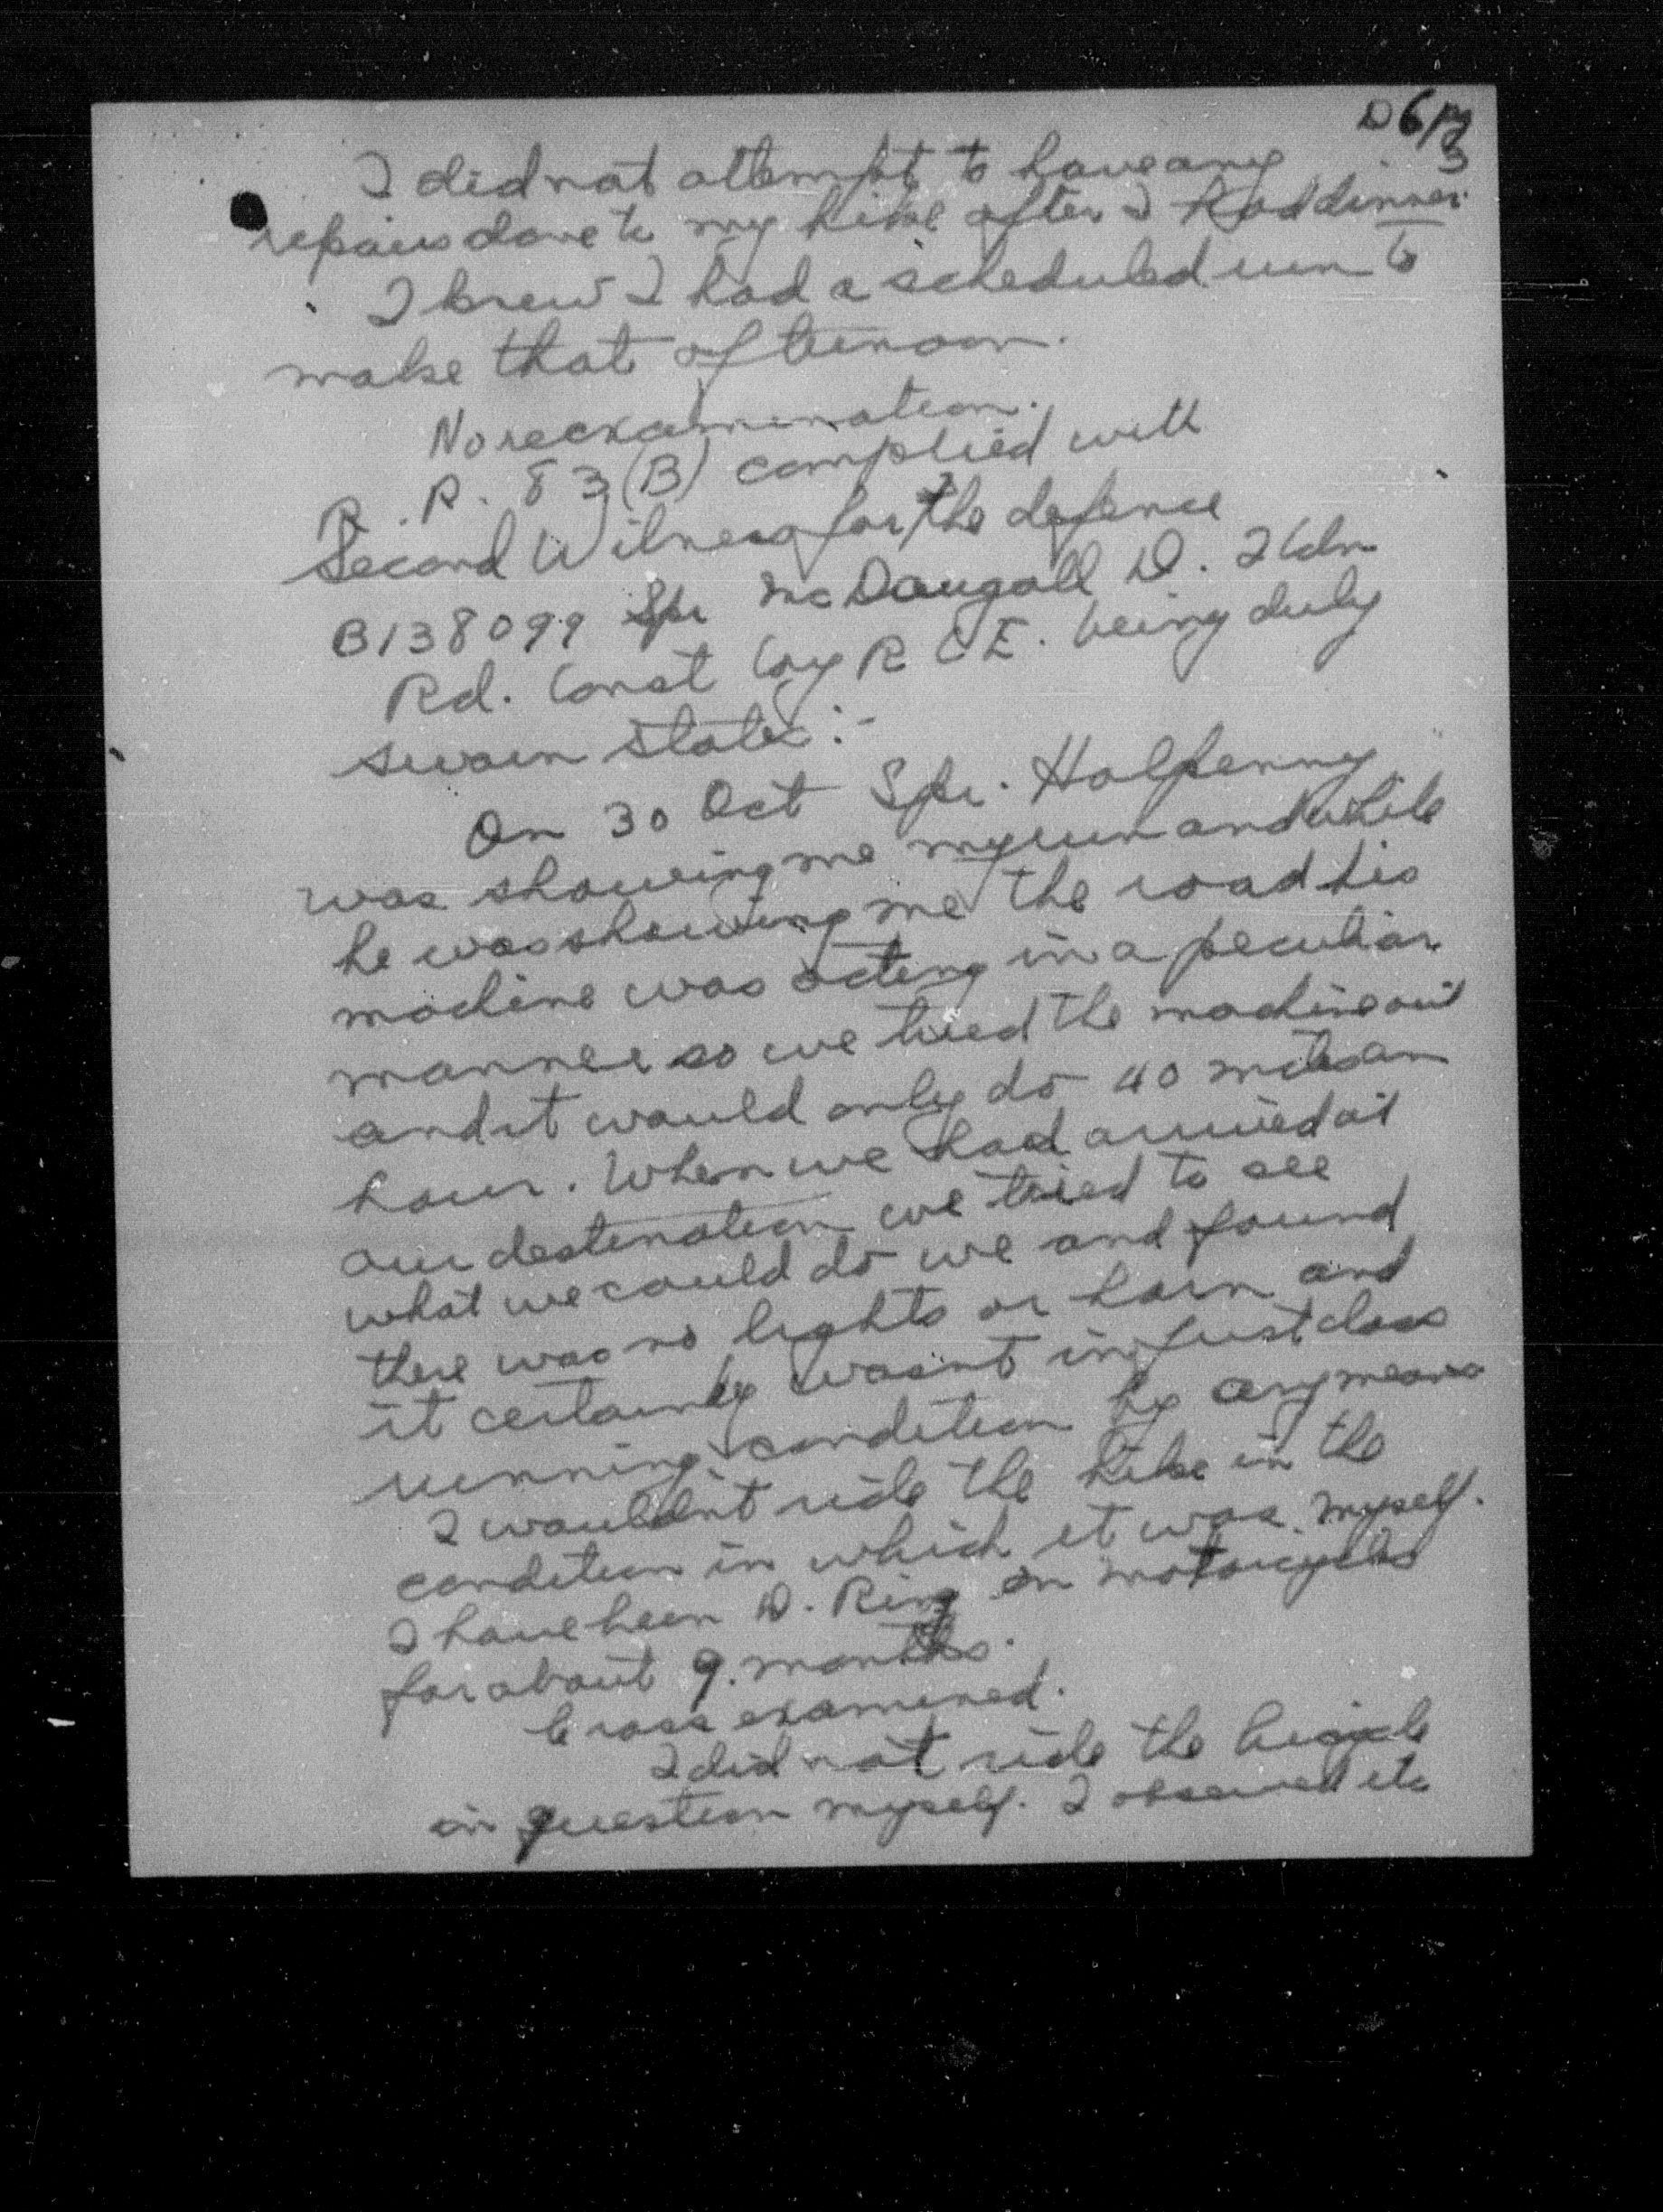 D 6/P3
I did not attempt to have any
repairs done to my bike after I had dinner.
I knew I had a scheduled run to
make that afternoon.
No reexamination.
R. P. 83 (B) complied with
Second Witness for the defence
B138099 Spr McDougall D. 2 Cdn
Rd. Const Coy R C E. being duly
sworn states:-
On 30 Oct Spr. Halfpenny
was showing me my run and while
he was showing me the road his
machine was acting in a peculiar
manner so we tried the machine out
and it would only do 40 miles an
hour. When we had arrived at
our destination we tried to see
what we could do we and found
there was no lights or horn and
it certainly wasn't in first class
running condition by any means
I wouldn't ride the bike in the
condition in which it was myself.
I have been D. Ring on motorcycles
for about 9. months.
Cross examined.
I did not ride the bicycle
in question myself. I observed its